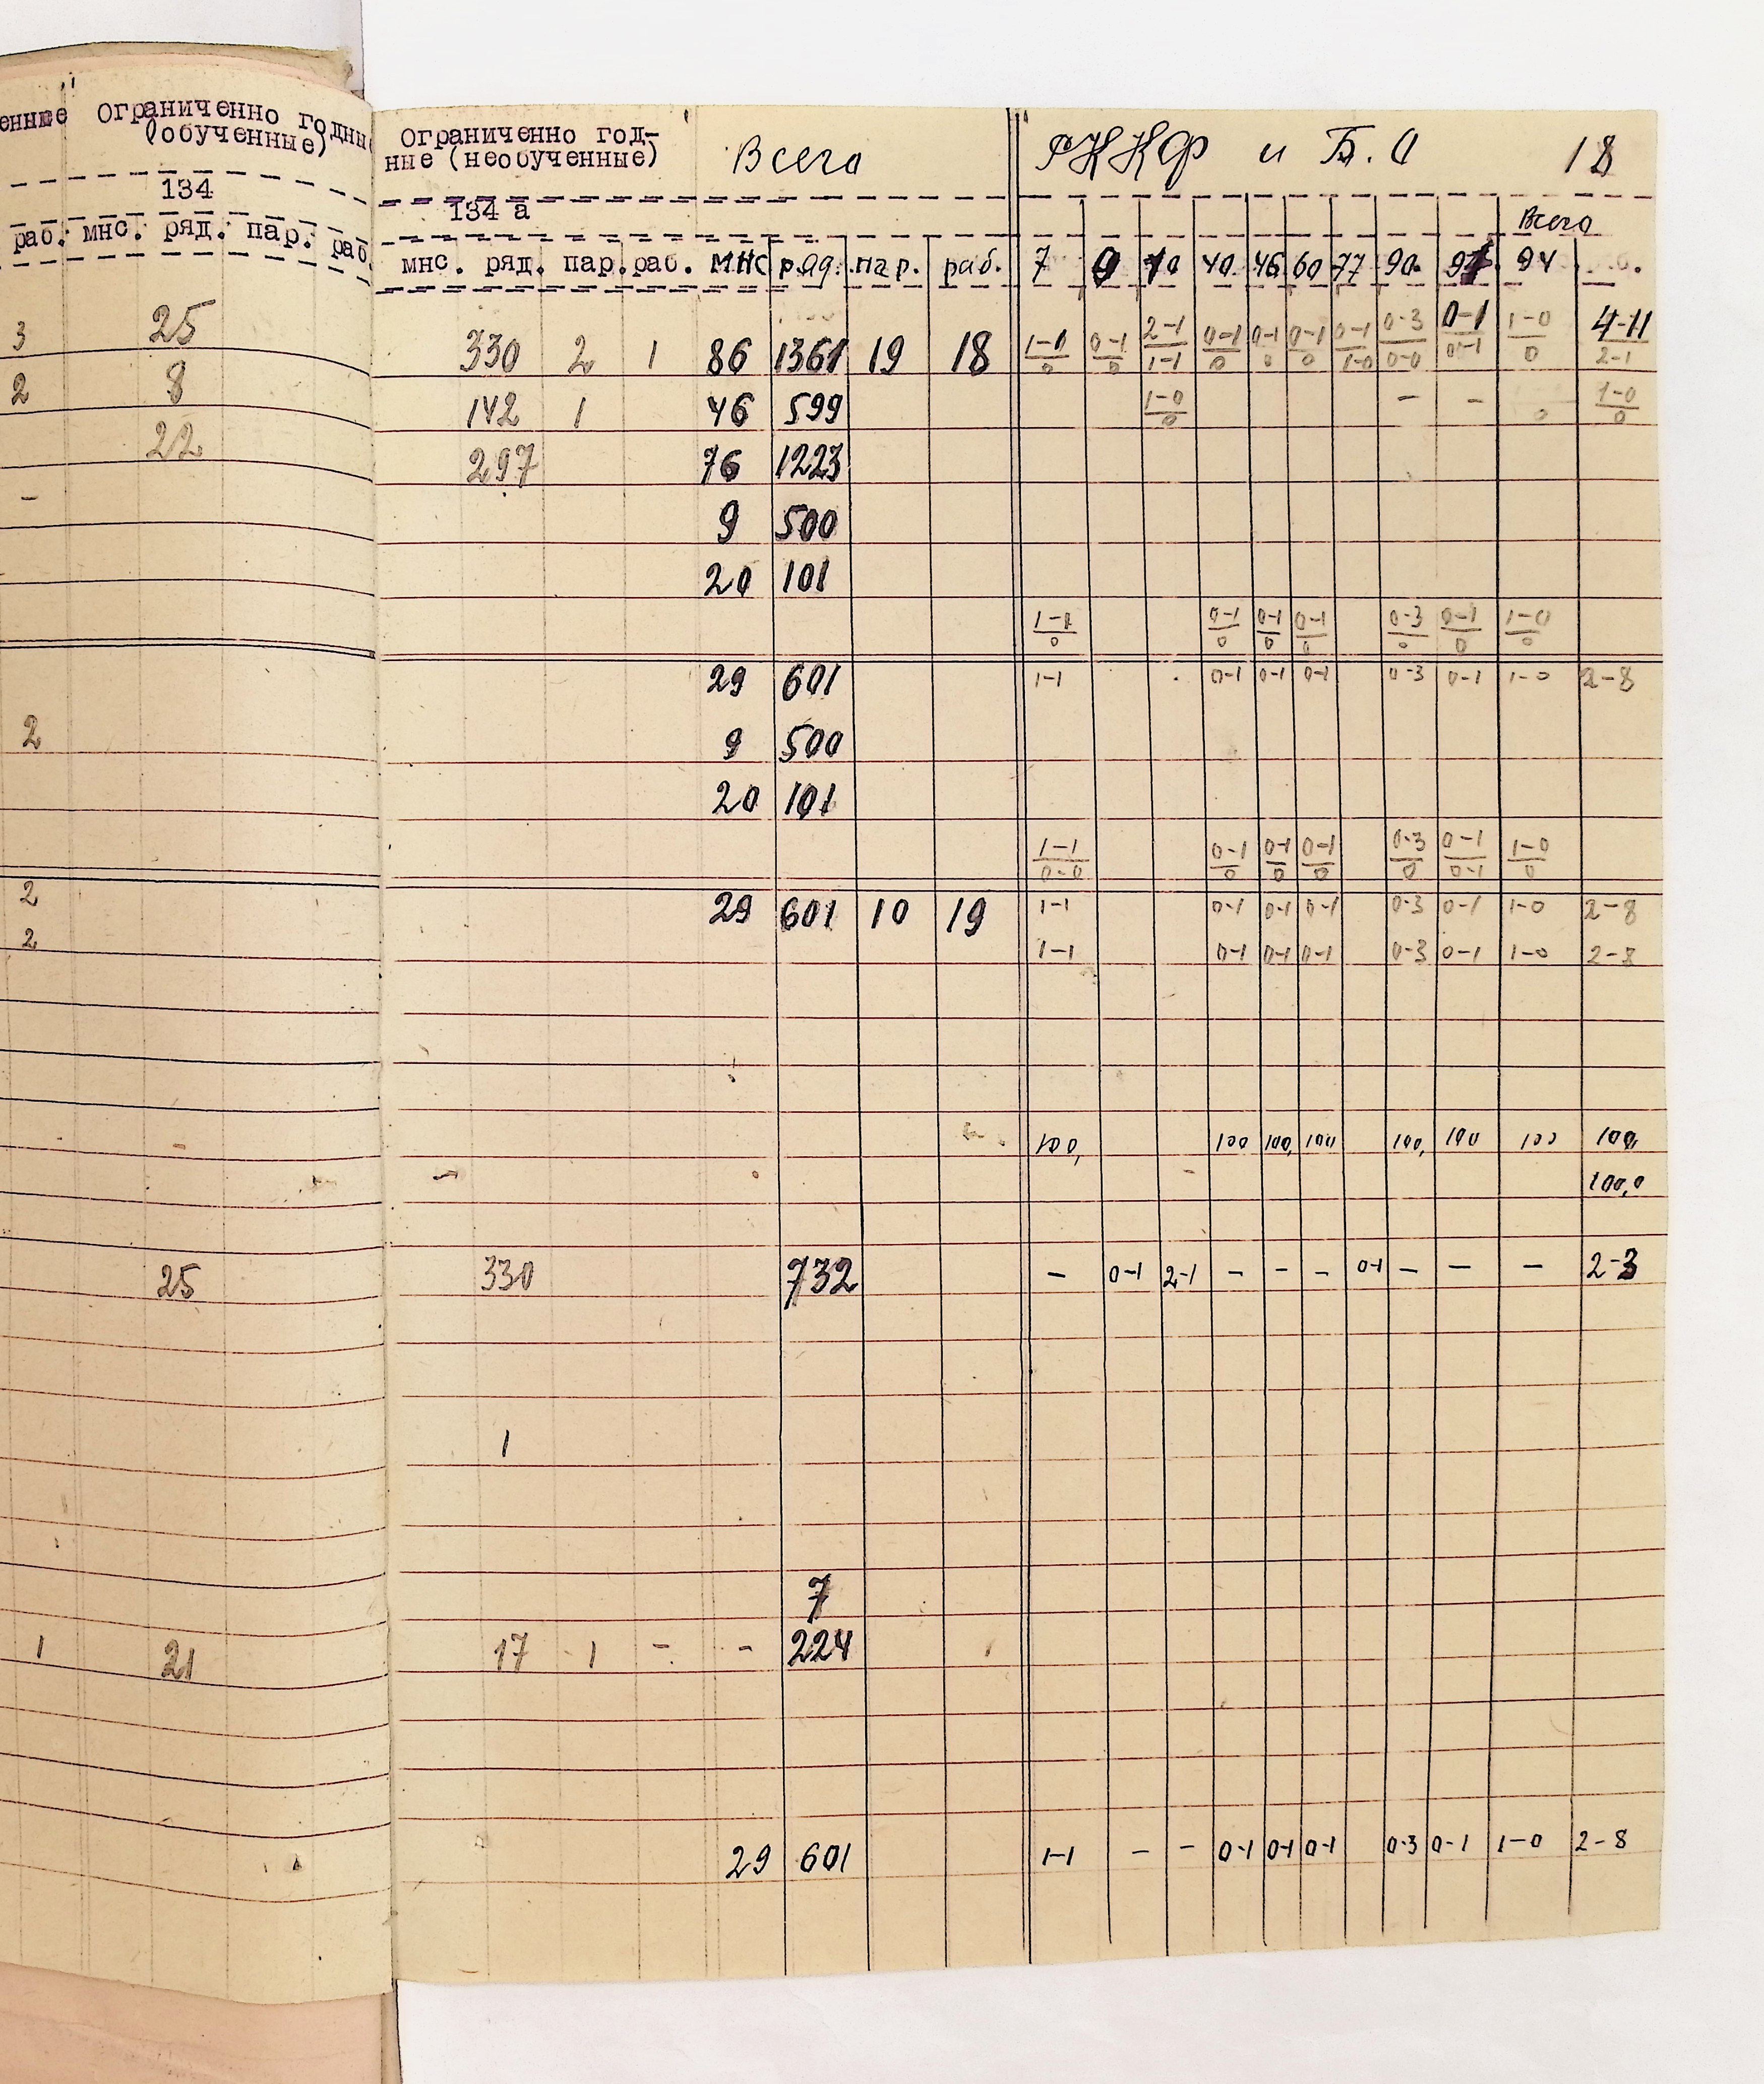 енные Ограниченно годны Ограниченно год- Всего РККФ и Б.О 18
(обученные) ные (необученные)
134 134 а Всего
раб. мнс. ряд. пар. раб. мнс. ряд. пар. раб. МНС ряд. пар. раб. 7 9 10 40 46 60 77 90 91 94
3 25 330 2 1 86 1361 19 18 1-0/0 0-1/0 2-1/1-1 0-1/0 0-1/0 0-1/0 0-1/1-0 0-3/0-0 0-1/00-1 1-0/0 4-11/2-1
2 8 142 1 46 599 1-0/0 - - 0 1-0/0
22 297 76 1223
- 9 500
20 101
1-0/0 0-1/0 0-1/0 0-1/0 0-3/0 0-1/0 1-0/0
29 601 1-1 0-1 0-1 0-1 0-3 0-1 1-0 2-8
2 9 500
20 101
1-1/0-0 0-1/0 0-1/0 0-1/0 0-3/0 0-1/0-1 1-0/0
2 29 601 10 19 1-1 0-1 0-1 0-1 0-3 0-1 1-0 2-8
2 1-1 0-1 0-1 0-1 0-3 0-1 1-0 2-8
100, 100 100, 100 100, 100 100 100,
100,0
25 330 732 - 0-1 2-1 - - - 0-1 - - - 2-3
1
7
1 21 17 1 - - 224
29 601 1-1 - - 0-1 0-1 0-1 0-3 0-1 1-0 2-8